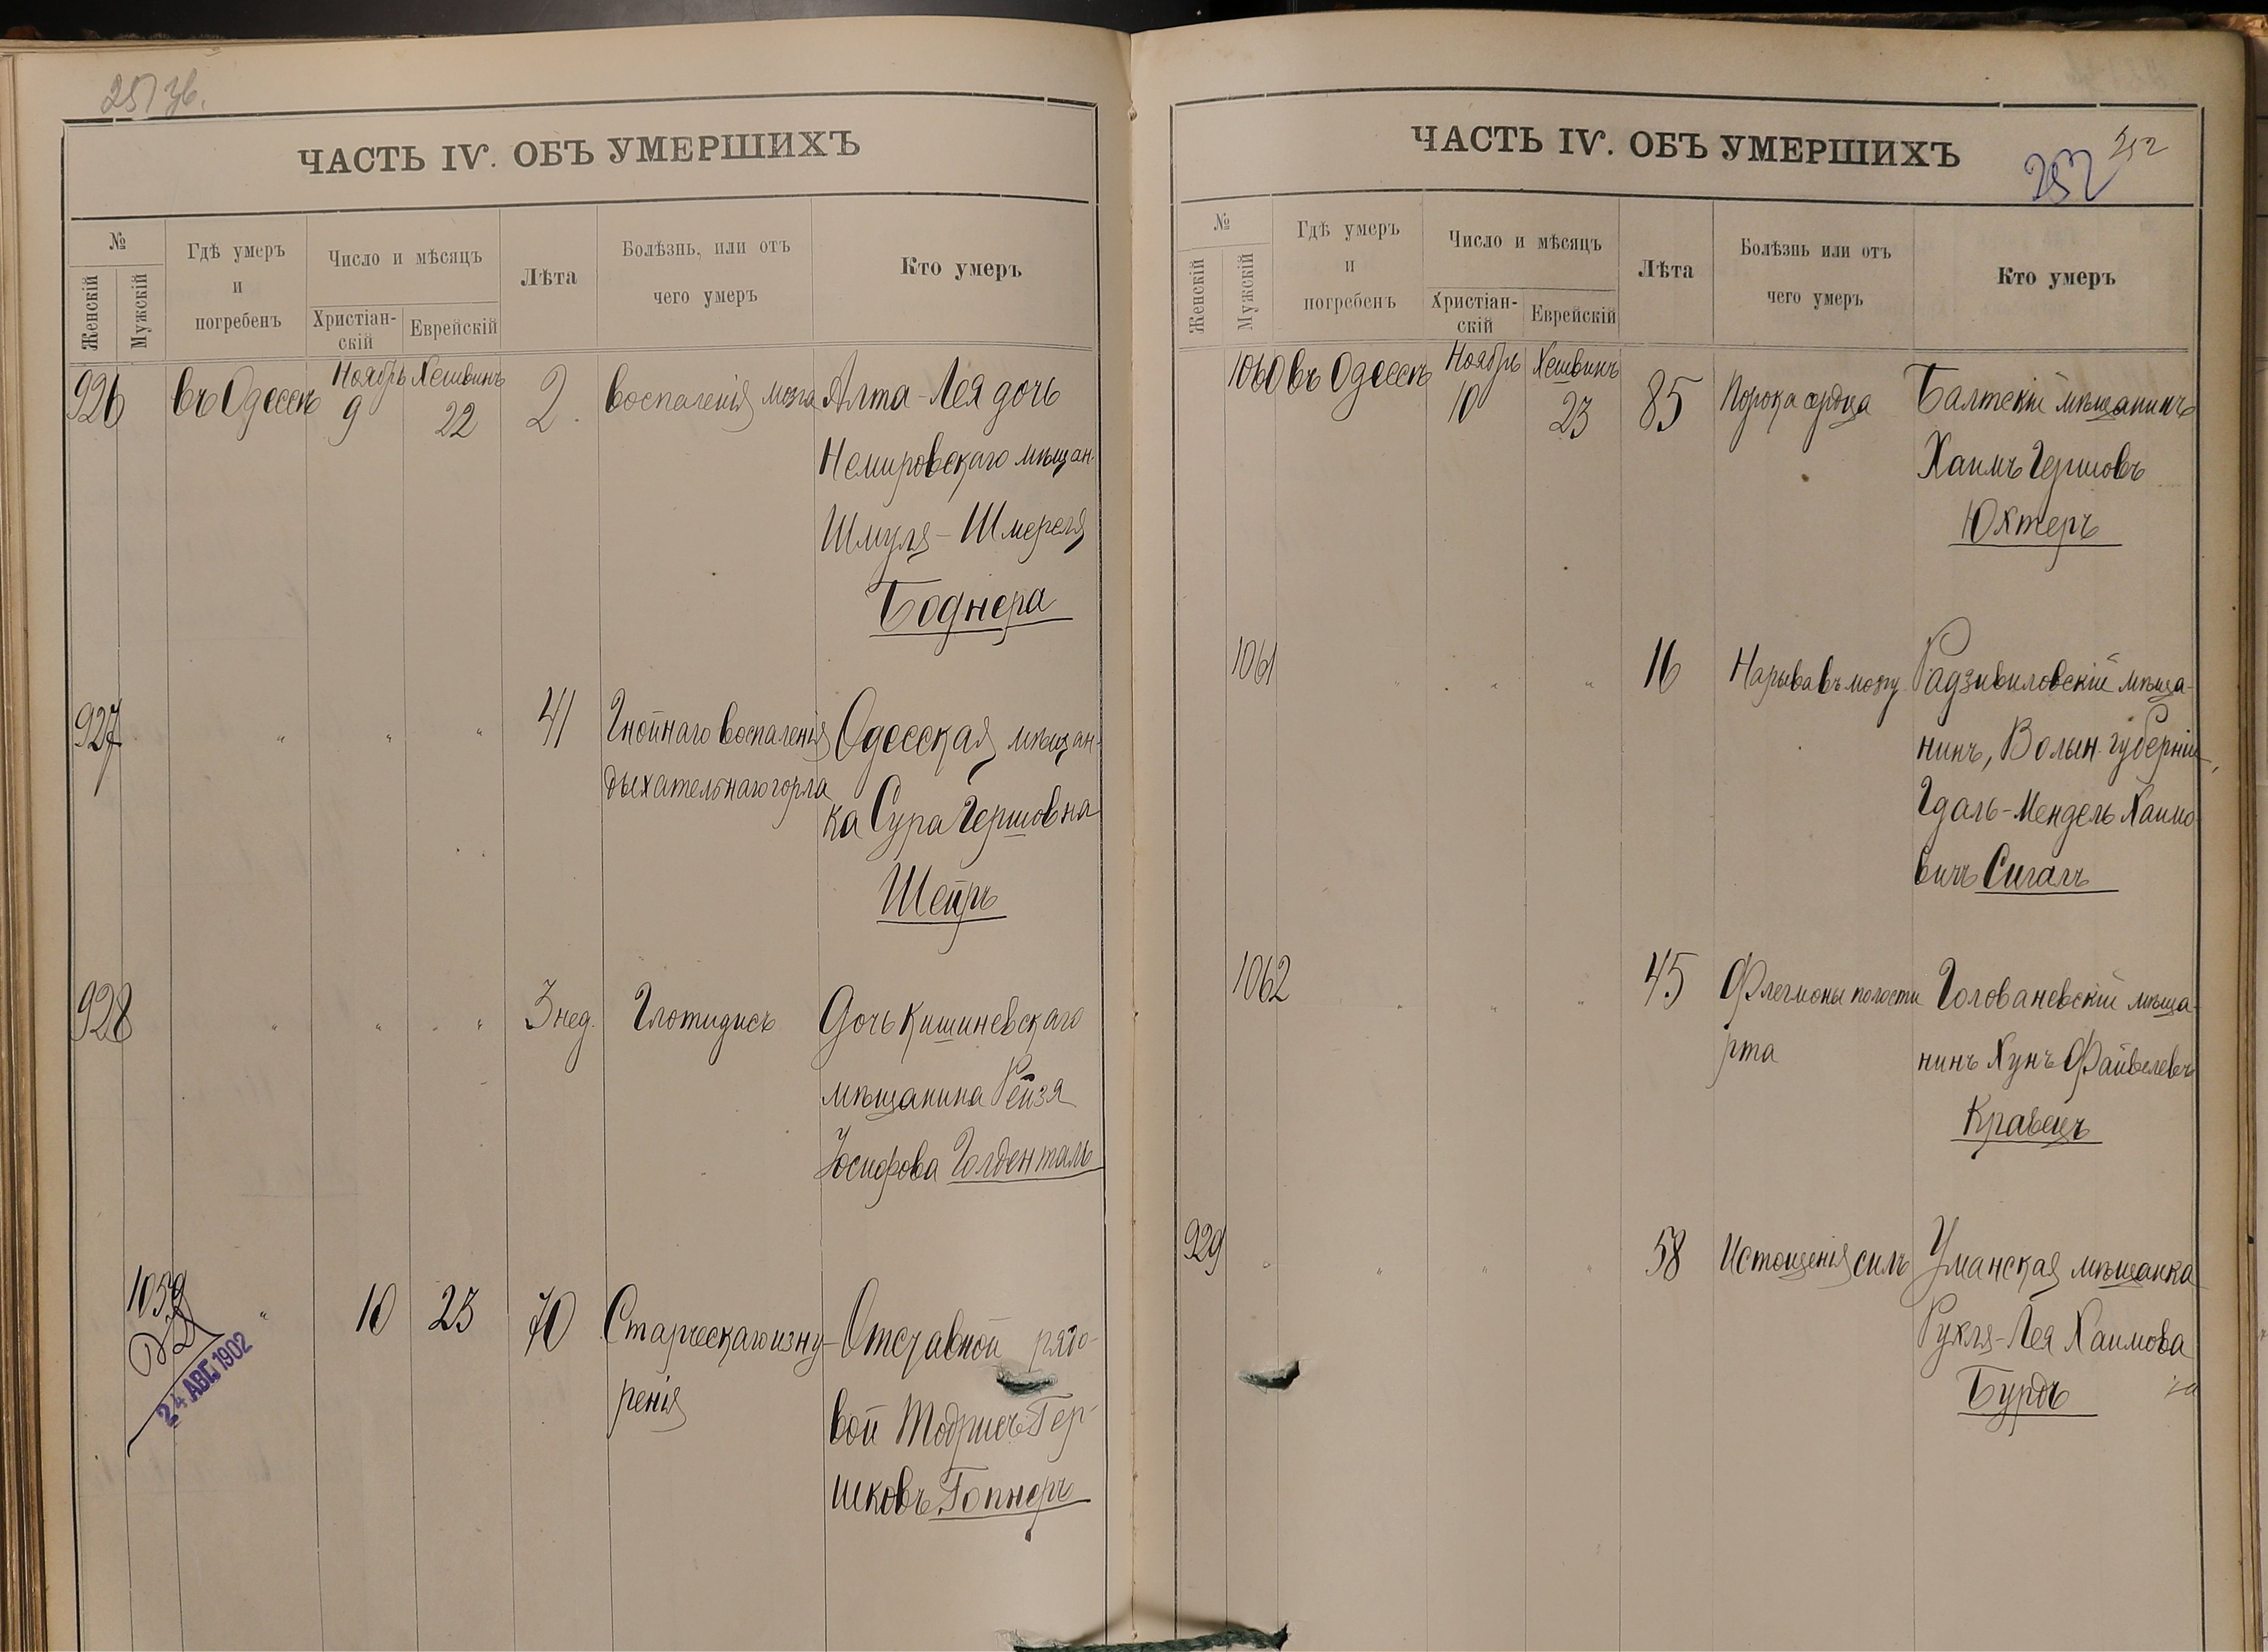 251 зв.
ЧАСТЬ IV. ОБЪ УМЕРШИХЪ
№
Женскій
Мужскій
Гдѣ умеръ
и
погребенъ
Число и мѣсяцъ
Христіан-
скій
Еврейскій
Лѣта
Болѣзнь, или отъ
чего умеръ
Кто умеръ
926 въ Одессѣ Ноябрь 9 Хешвинъ 22 2. воспаленія мозга Алта-Лея дочь
Немировскаго мѣщан.
Шмуля-Шмереля
Боднера
927 " " " 41 Гнойнаго воспаленія Одесская мѣщан-
дыхательнаго горла ка Сура Гершовна
Шейръ
928 " " " 3 нед. Глотидисъ Дочь Кишиневскаго
мѣщанина Рейзя
Іосифова Голденталь
1059 " 10 23 70 Старческаго изну- Отставной рядо-
ренія вой Тодрисъ Гер-
шковъ Гопнеръ
24 АВГ. 1902
ЧАСТЬ IV. ОБЪ УМЕРШИХЪ
252
252
№
Женскій
Мужскій
Гдѣ умеръ
и
погребенъ
Число и мѣсяцъ
Христіан-
скій
Еврейскій
Лѣта
Болѣзнь или отъ
чего умеръ
Кто умеръ
1060 въ Одессѣ Ноябрь 10 Хешвинъ 23 85 Порока сердца Балтскій мѣщанинъ
Хаимъ Гершовъ
Юхтеръ
1061 " " " 16 Нарыва въ мозгу Радзивиловскій мѣща-
нинъ, Волын. губерніи,
Гдаль-Мендель Хаимо
вичъ Сигалъ
1062 " " " 45 Флегмоны полости Голованевскій мѣща-
рта нинъ Хунъ Файвелевъ
Кравецъ
929 " " " 58 Истощенія силъ Уманская мѣщанка
Рухля-Лея Хаимова
Бурдъ